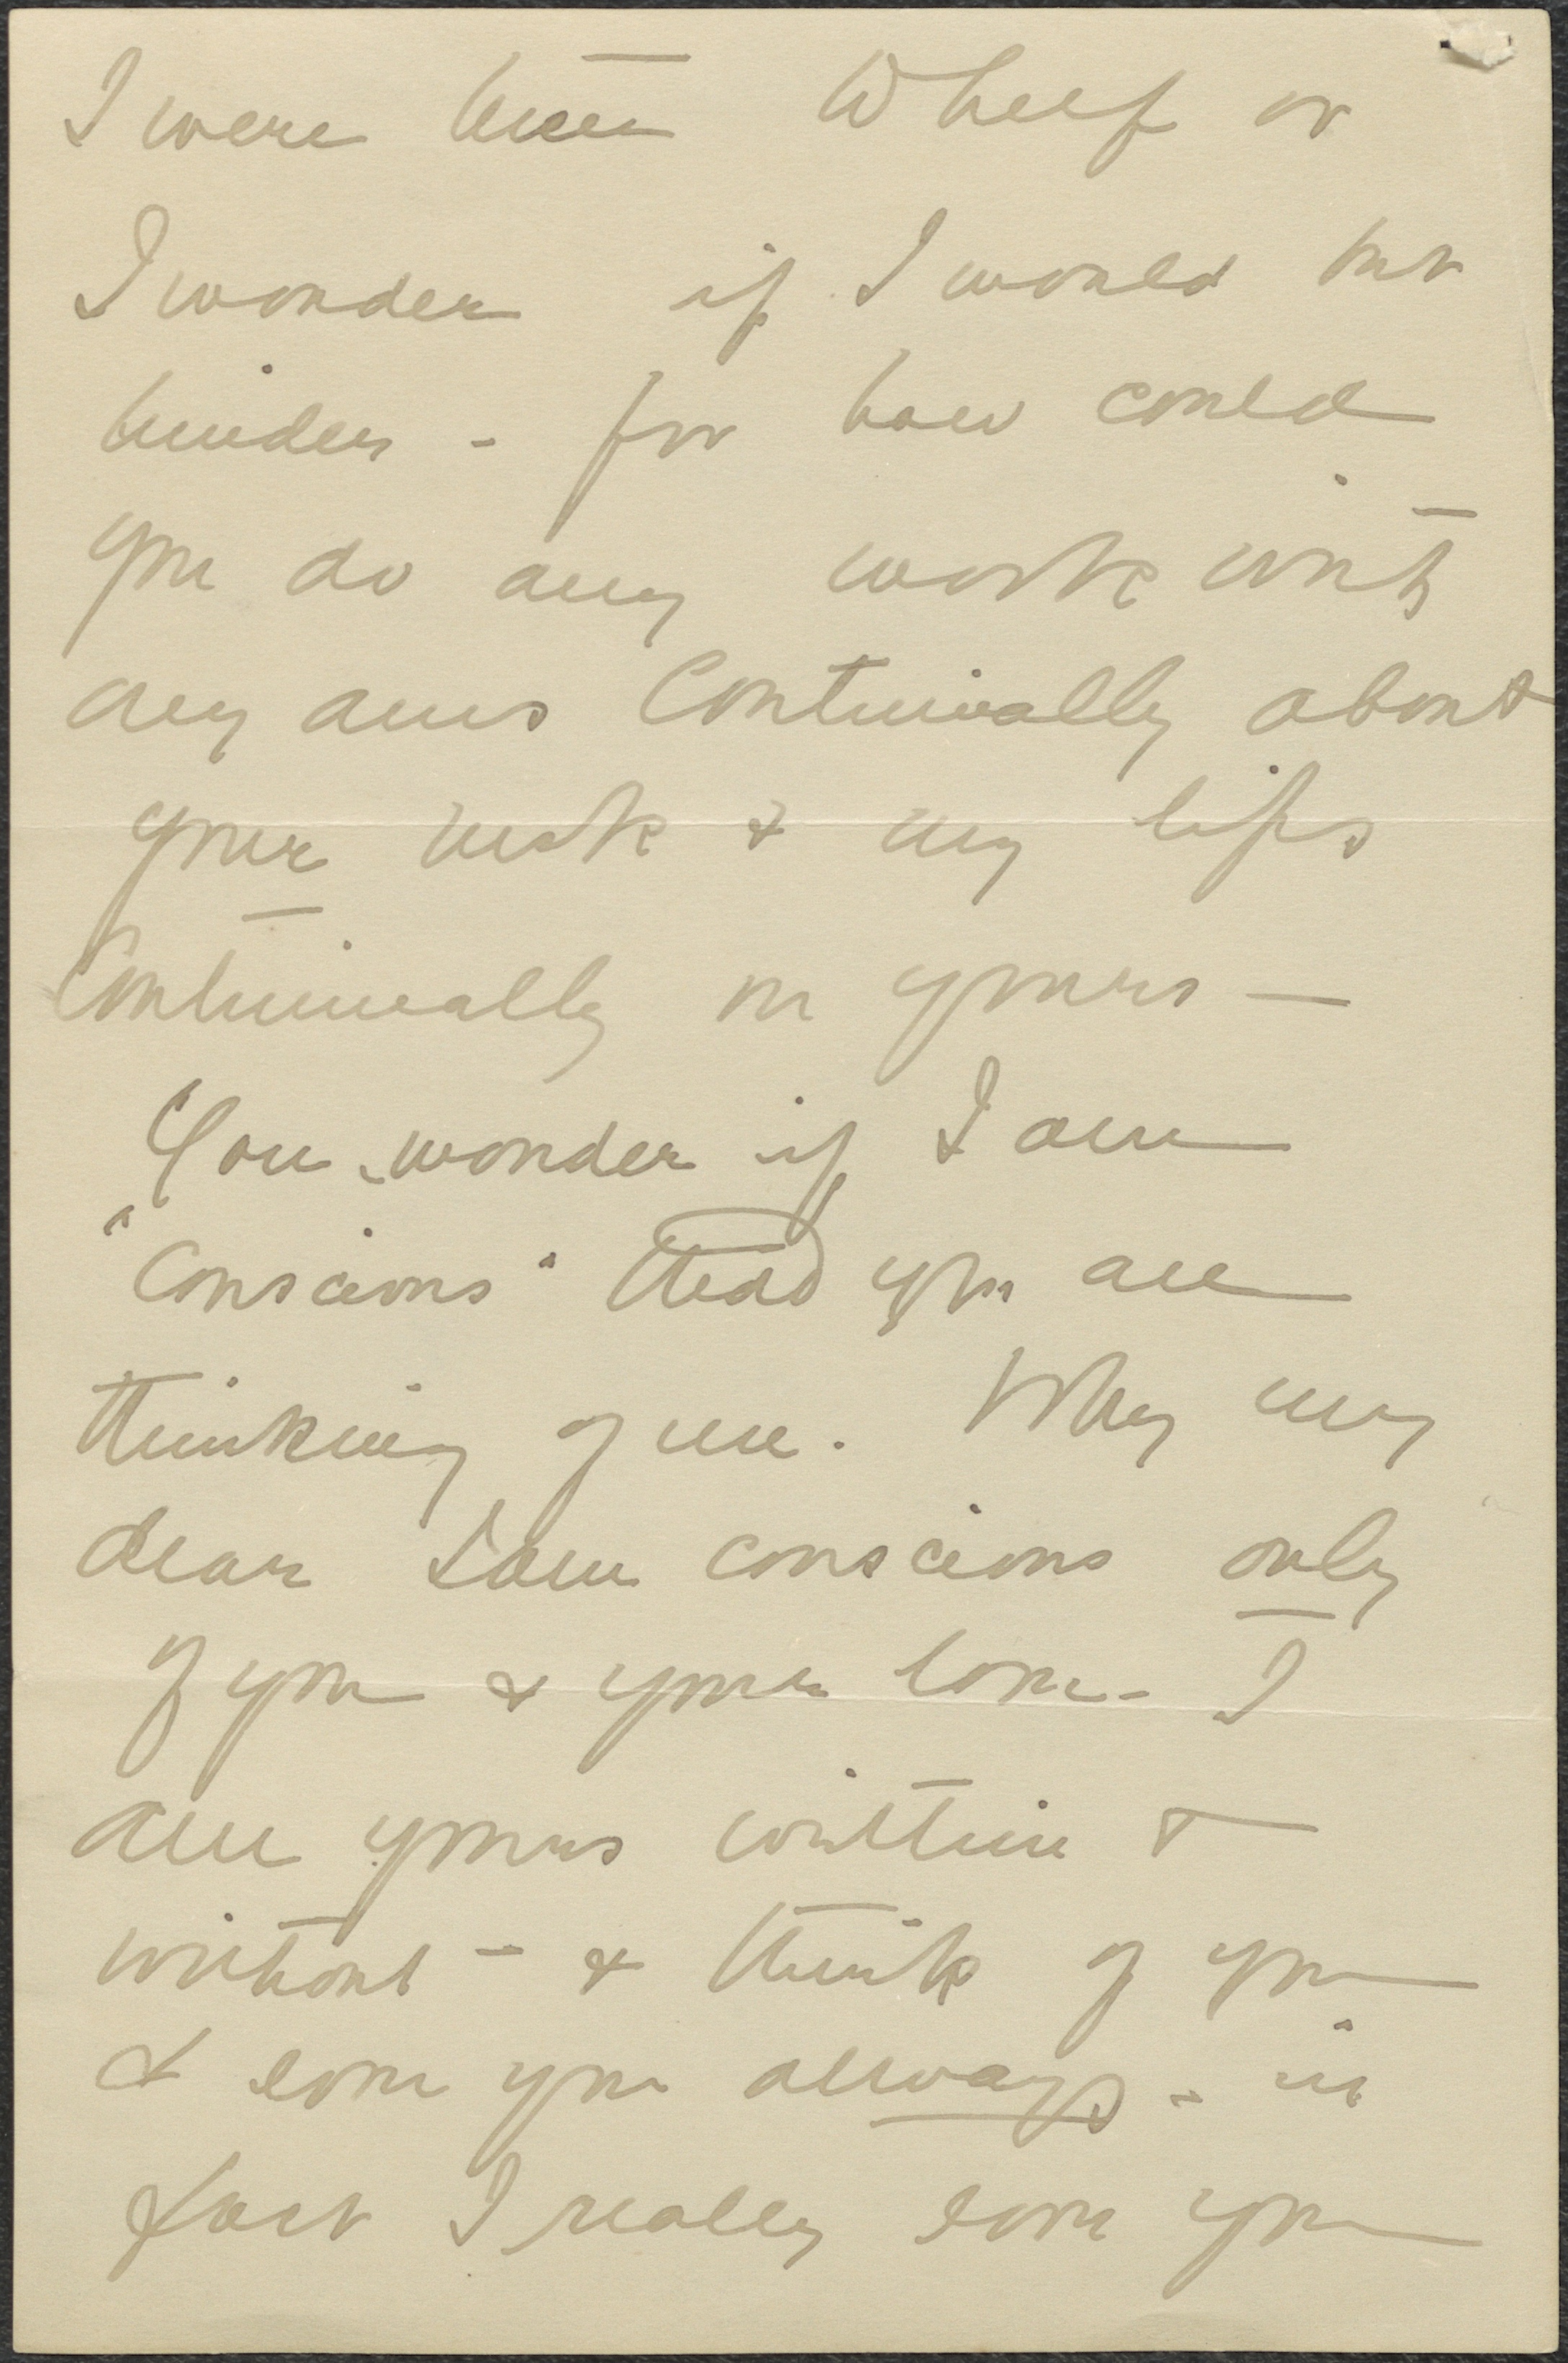 I were there to help or
I wonder if I would but
hinder - for how could
you do any work with
my arms continually about
your neck & my lips
continually on yours —
You wonder if I am
"conscious" that you are
thinking of me. Why my
dear I am conscious only
of you & your love - I
am yours within &
without - & think of you
& love you always - in
fact I really love you